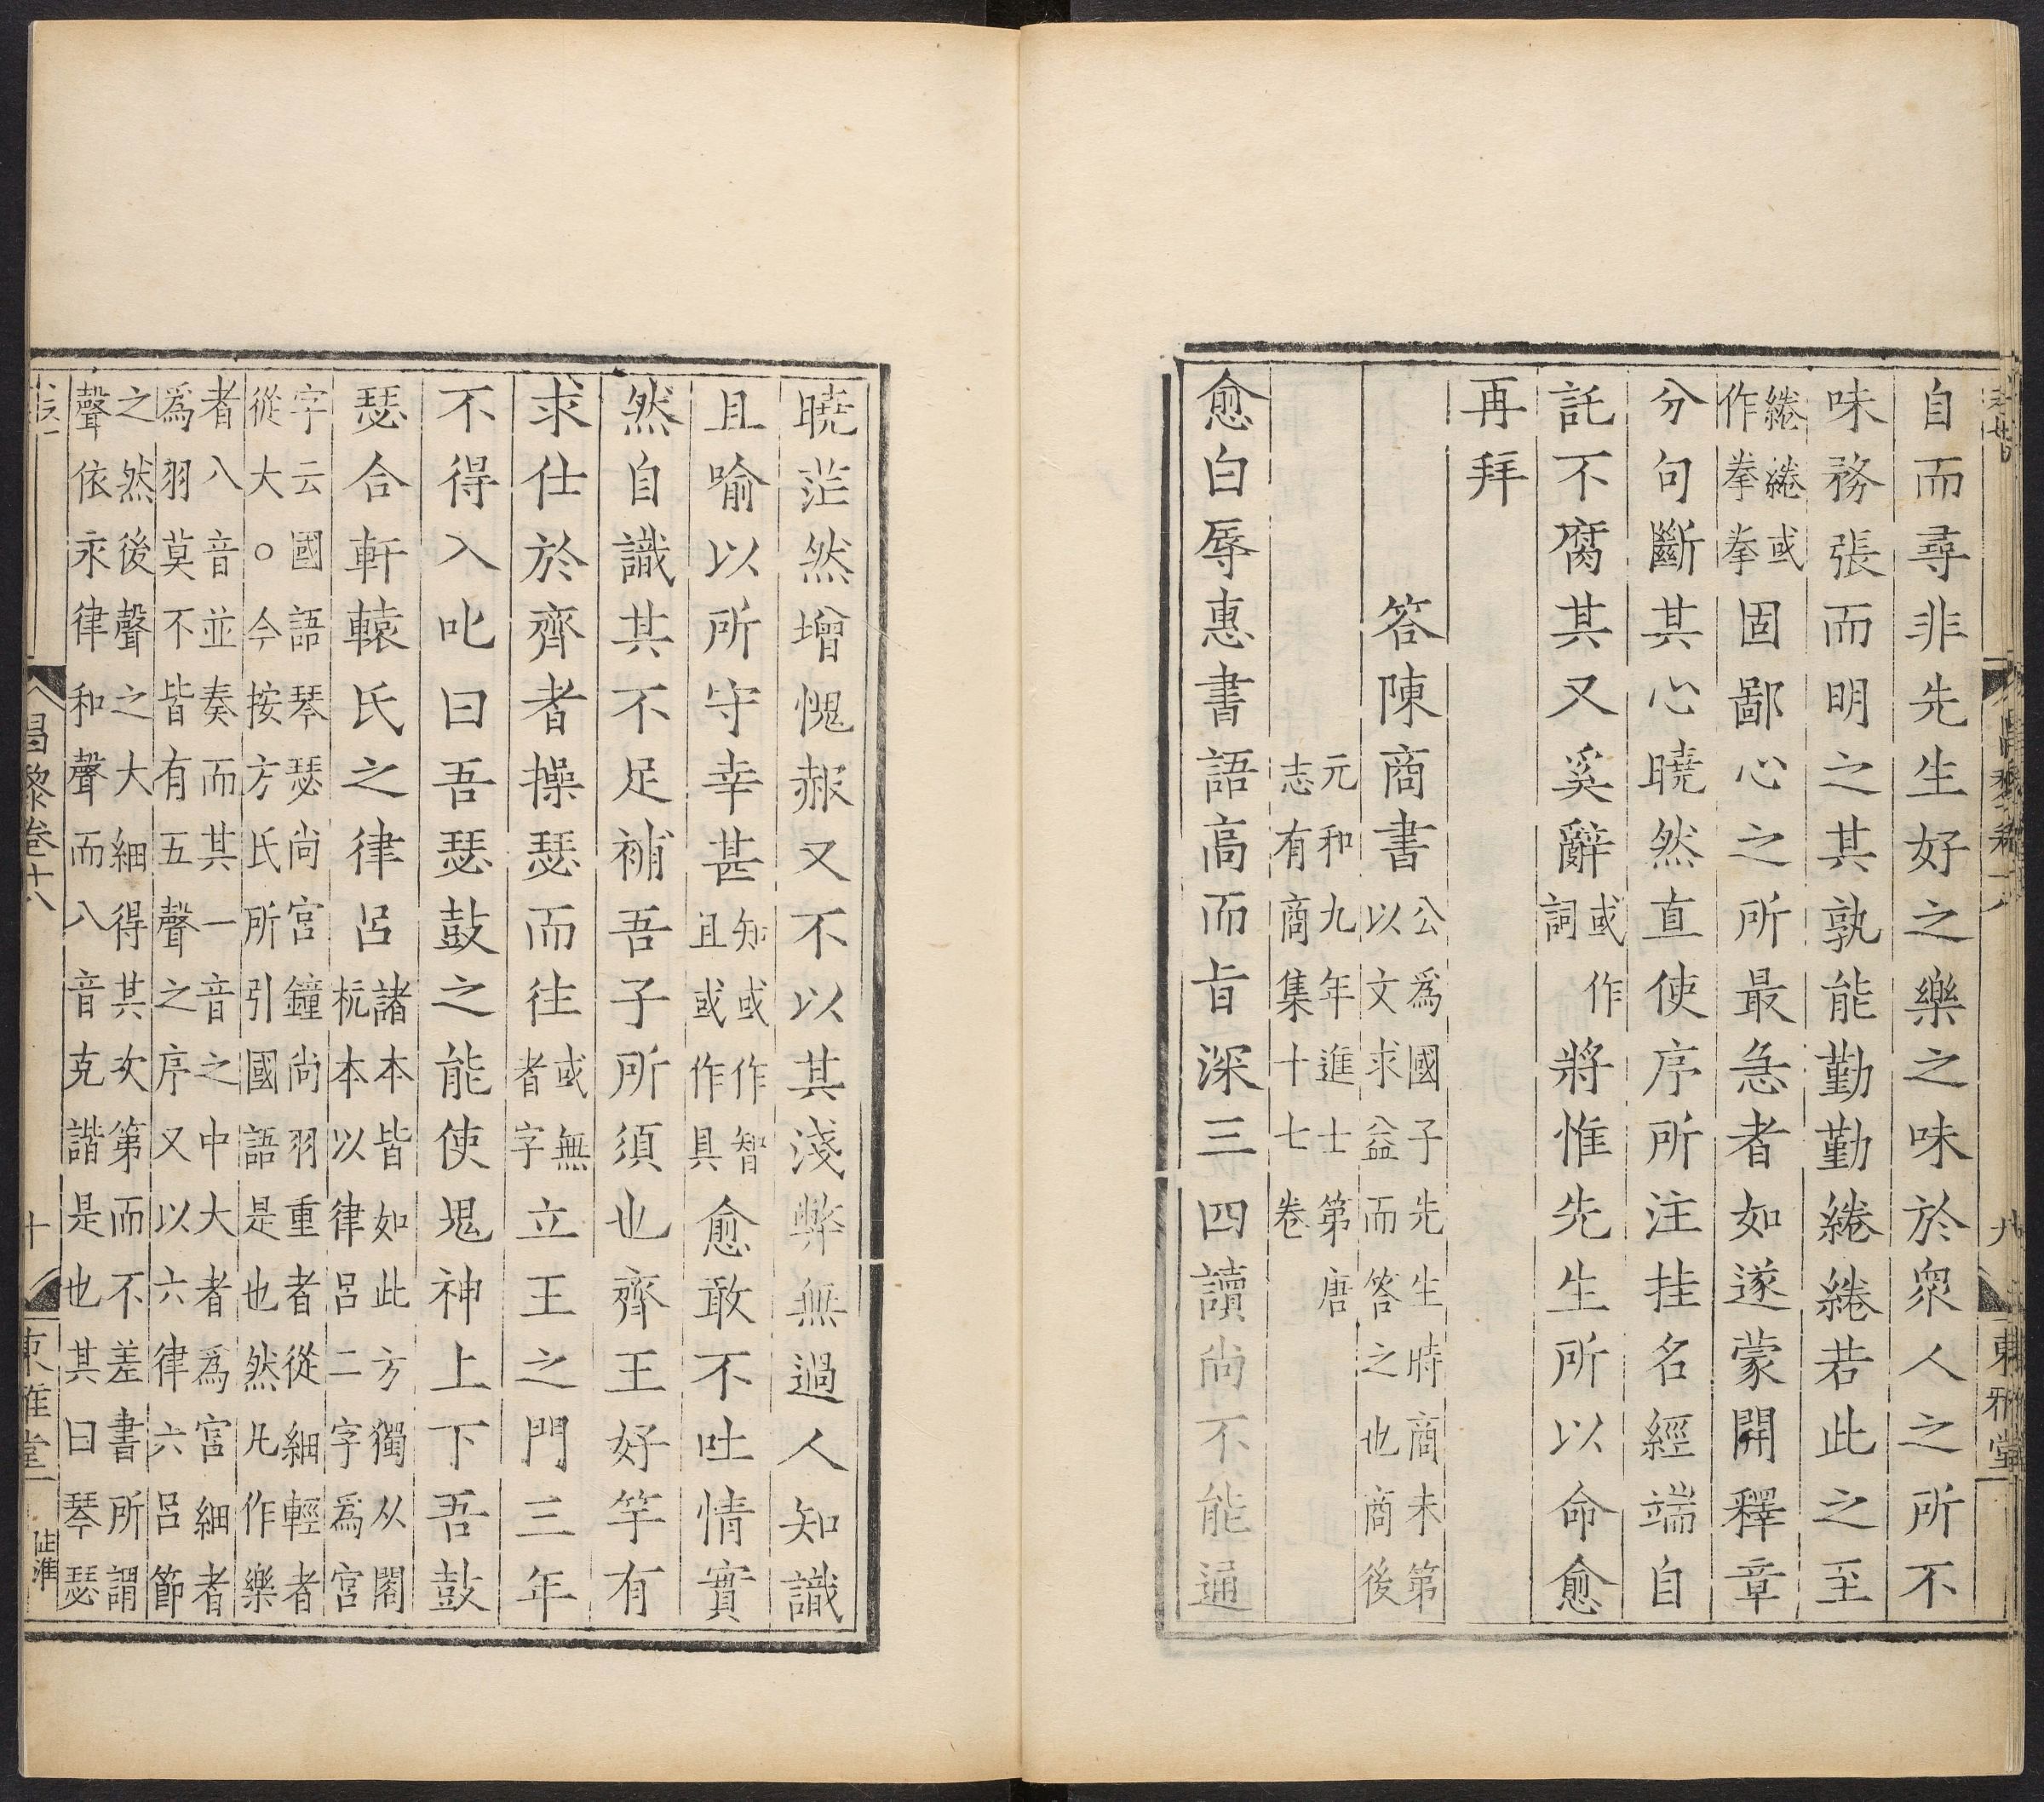 自而尋非先生好之樂之味於衆人之所不
味務張而明之其孰能勤勤綣綣若此之至
綣綣或作拳拳固鄙心之所最急者如遂蒙開釋章
分句斷其心曉然直使序所注挂名經端自
託不腐其又奚辭或作詞將惟先生所以命愈
再拜
答陳商書公爲國子先生時商未第以文求益而答之也商後
元和九年進士第唐志有商集十七卷
愈白辱惠書語高而旨深三四讀尚不能通
東雅堂
曉茫然增愧赧又不以其淺弊無過人知識
且喻以所守幸甚知或作智且或作具愈敢不吐情實
然自識其不足補吾子所須也齊王好竽有
求仕於齊者操瑟而往或無者字立王之門三年
不得入叱曰吾瑟鼓之能使鬼神上下吾鼓
瑟合軒轅氏之律呂諸本皆如此方獨从閣杭本以律呂二字爲宮
字云國語琴瑟尚宮鐘尚羽重者從細輕者從大○今按方氏所引國語是也然凡作樂
者八音並奏而其一音之中大者爲宮細者爲羽莫不皆有五聲之序又以六律六呂節
之然後聲之大細得其次第而不差書所謂聲依永律和聲而八音克諧是也其曰琴瑟
昌黎卷十八
十
東雅堂